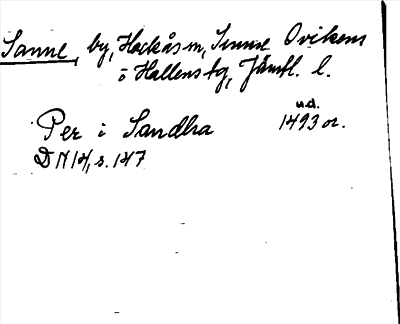 Sanne, by, Hackås sn, Sunne Ovikens
o Hallens tg, Jämtl. l.
u.d.
Per i Sandha 1493 or.
DN 14, s. 147